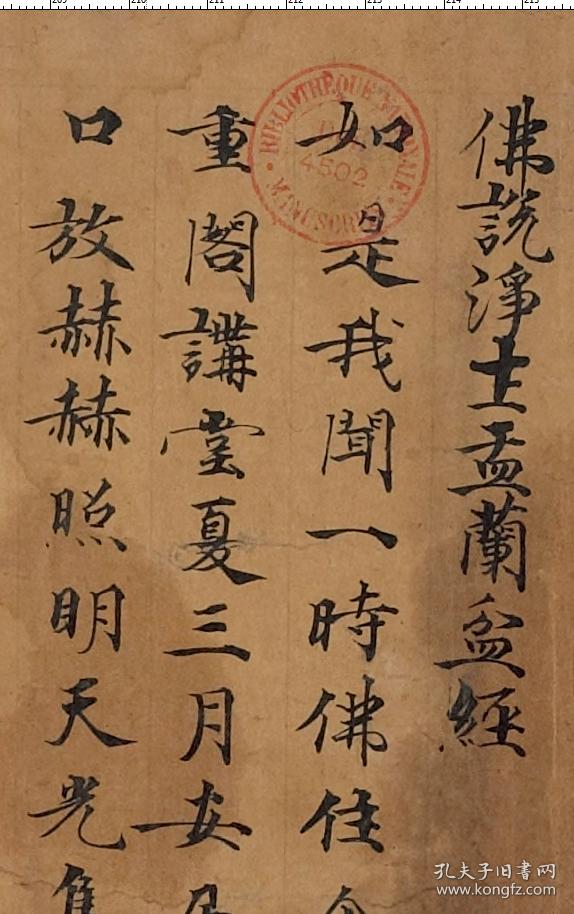 佛說淨土盂蘭盆經
如是我聞一時佛住
重閣講堂夏三月安
口放赫赫照明天光
BIBLIOTHEQUE NATIONALE
4502
MANUSCRITS
209 210 211 212 213 214 215
孔夫子旧书网
www.kongfz.com